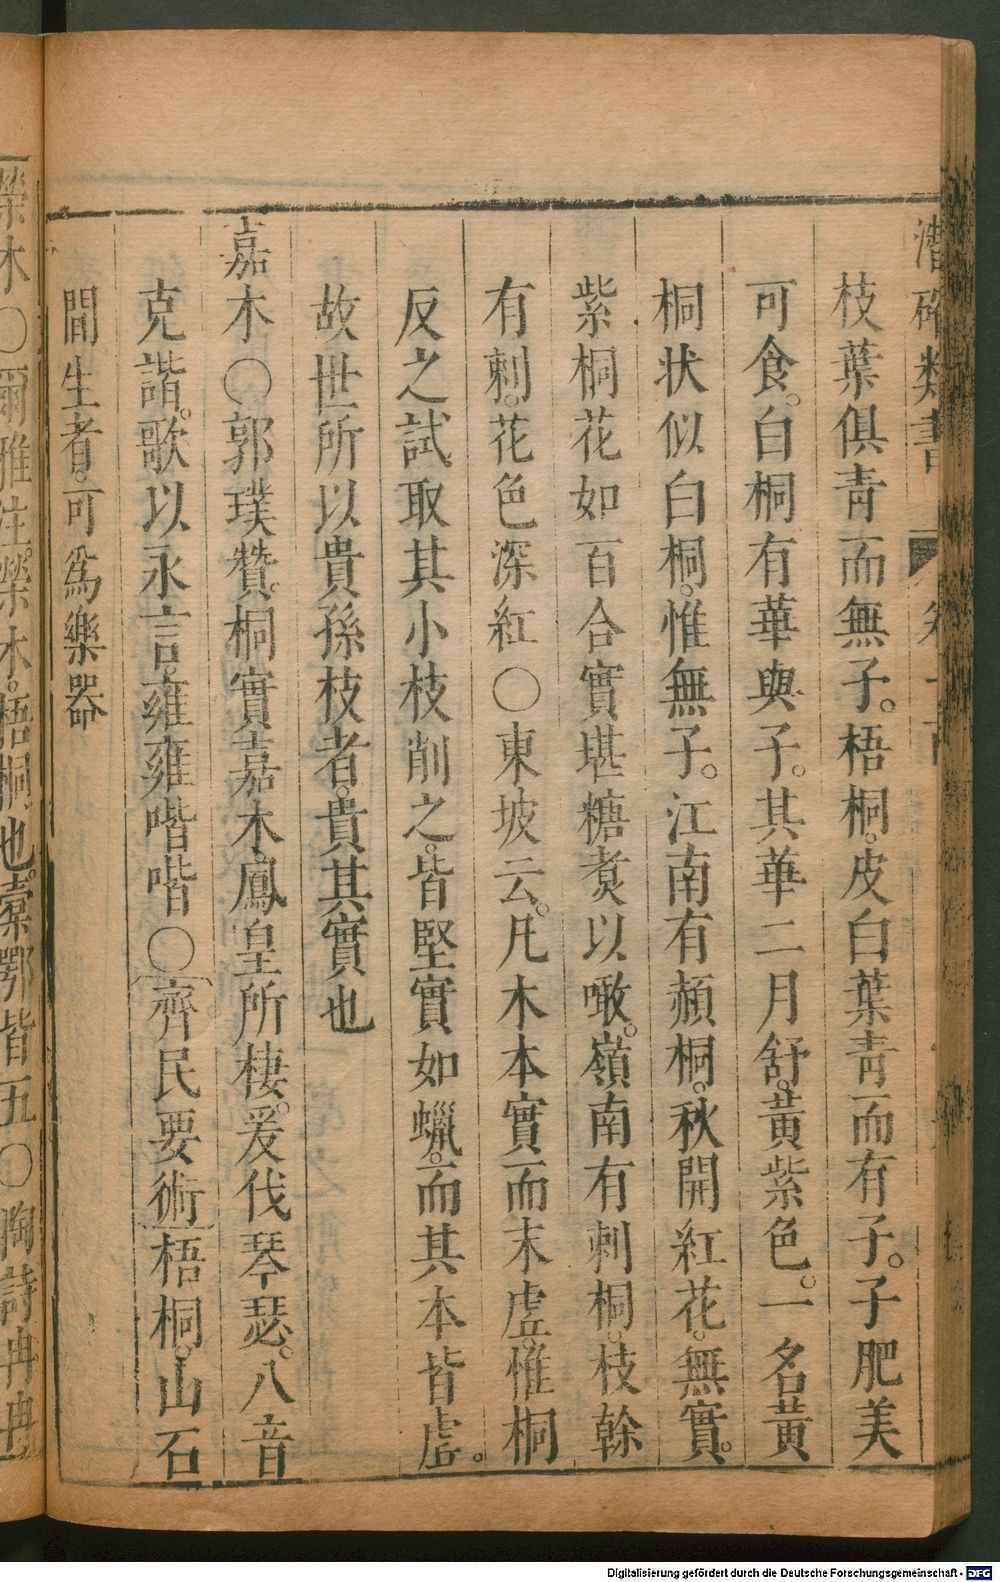 潛確類書
枝葉俱青而無子。梧桐。皮白葉青而有子。子肥美
可食。白桐有華與子。其華二月舒。黃紫色。一名黃
桐状似白桐。惟無子。江南有頳桐。秋開紅花。無實。
紫桐花如百合實堪糖煑以噉。嶺南有刺桐。枝幹
有刺。花色深紅〇東坡云。凡木本實而末虛。惟桐
反之試取其小枝削之。皆堅實如蠟。而其本皆虛。
故世所以貴孫枝者。貴其實也
嘉木〇郭璞贊。桐實嘉木鳳皇所棲。爰伐琴瑟。八音
克諧。歌以永言。雍雍喈喈〇齊民要術梧桐。山石
間生者。可為樂器
榮木〇爾雅注。榮木。梧桐也。橐鄂皆五〇陶詩冉冉
Digitalisierung gefördert durch die Deutsche Forschungsgemeinschaft - DFG